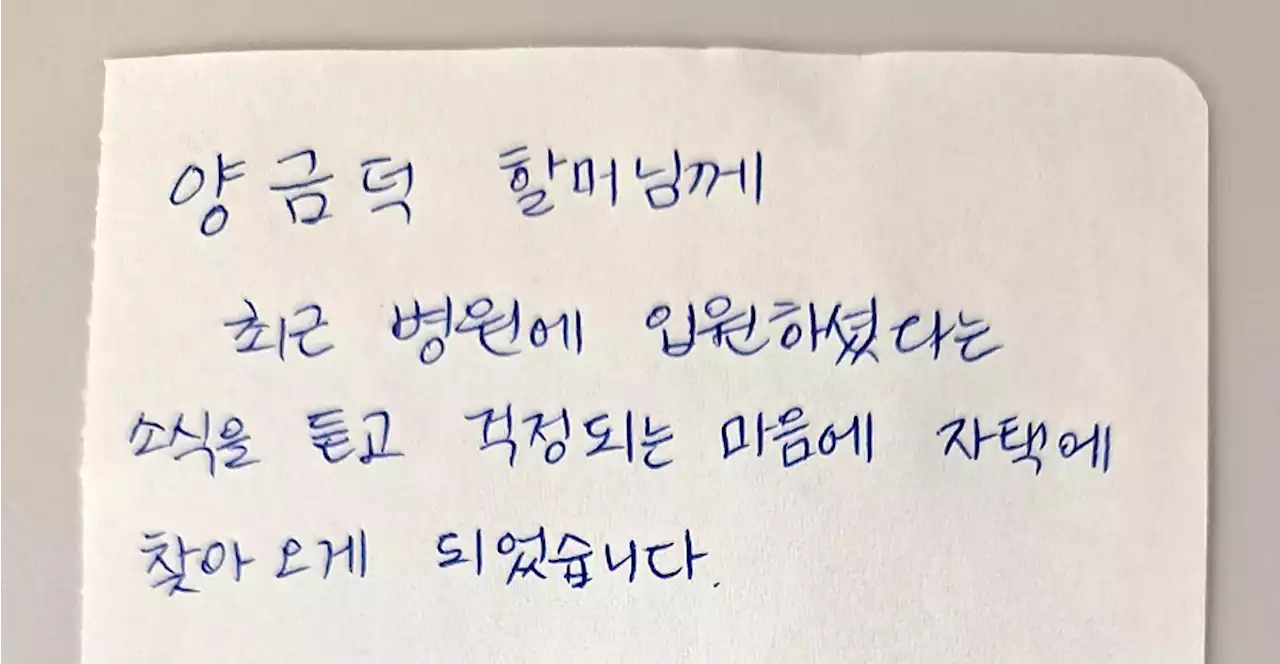 양금덕 할머님께
최근 병원에 입원하셨다는
소식을 듣고 걱정되는 마음에 자택에
찾아오게 되었습니다.